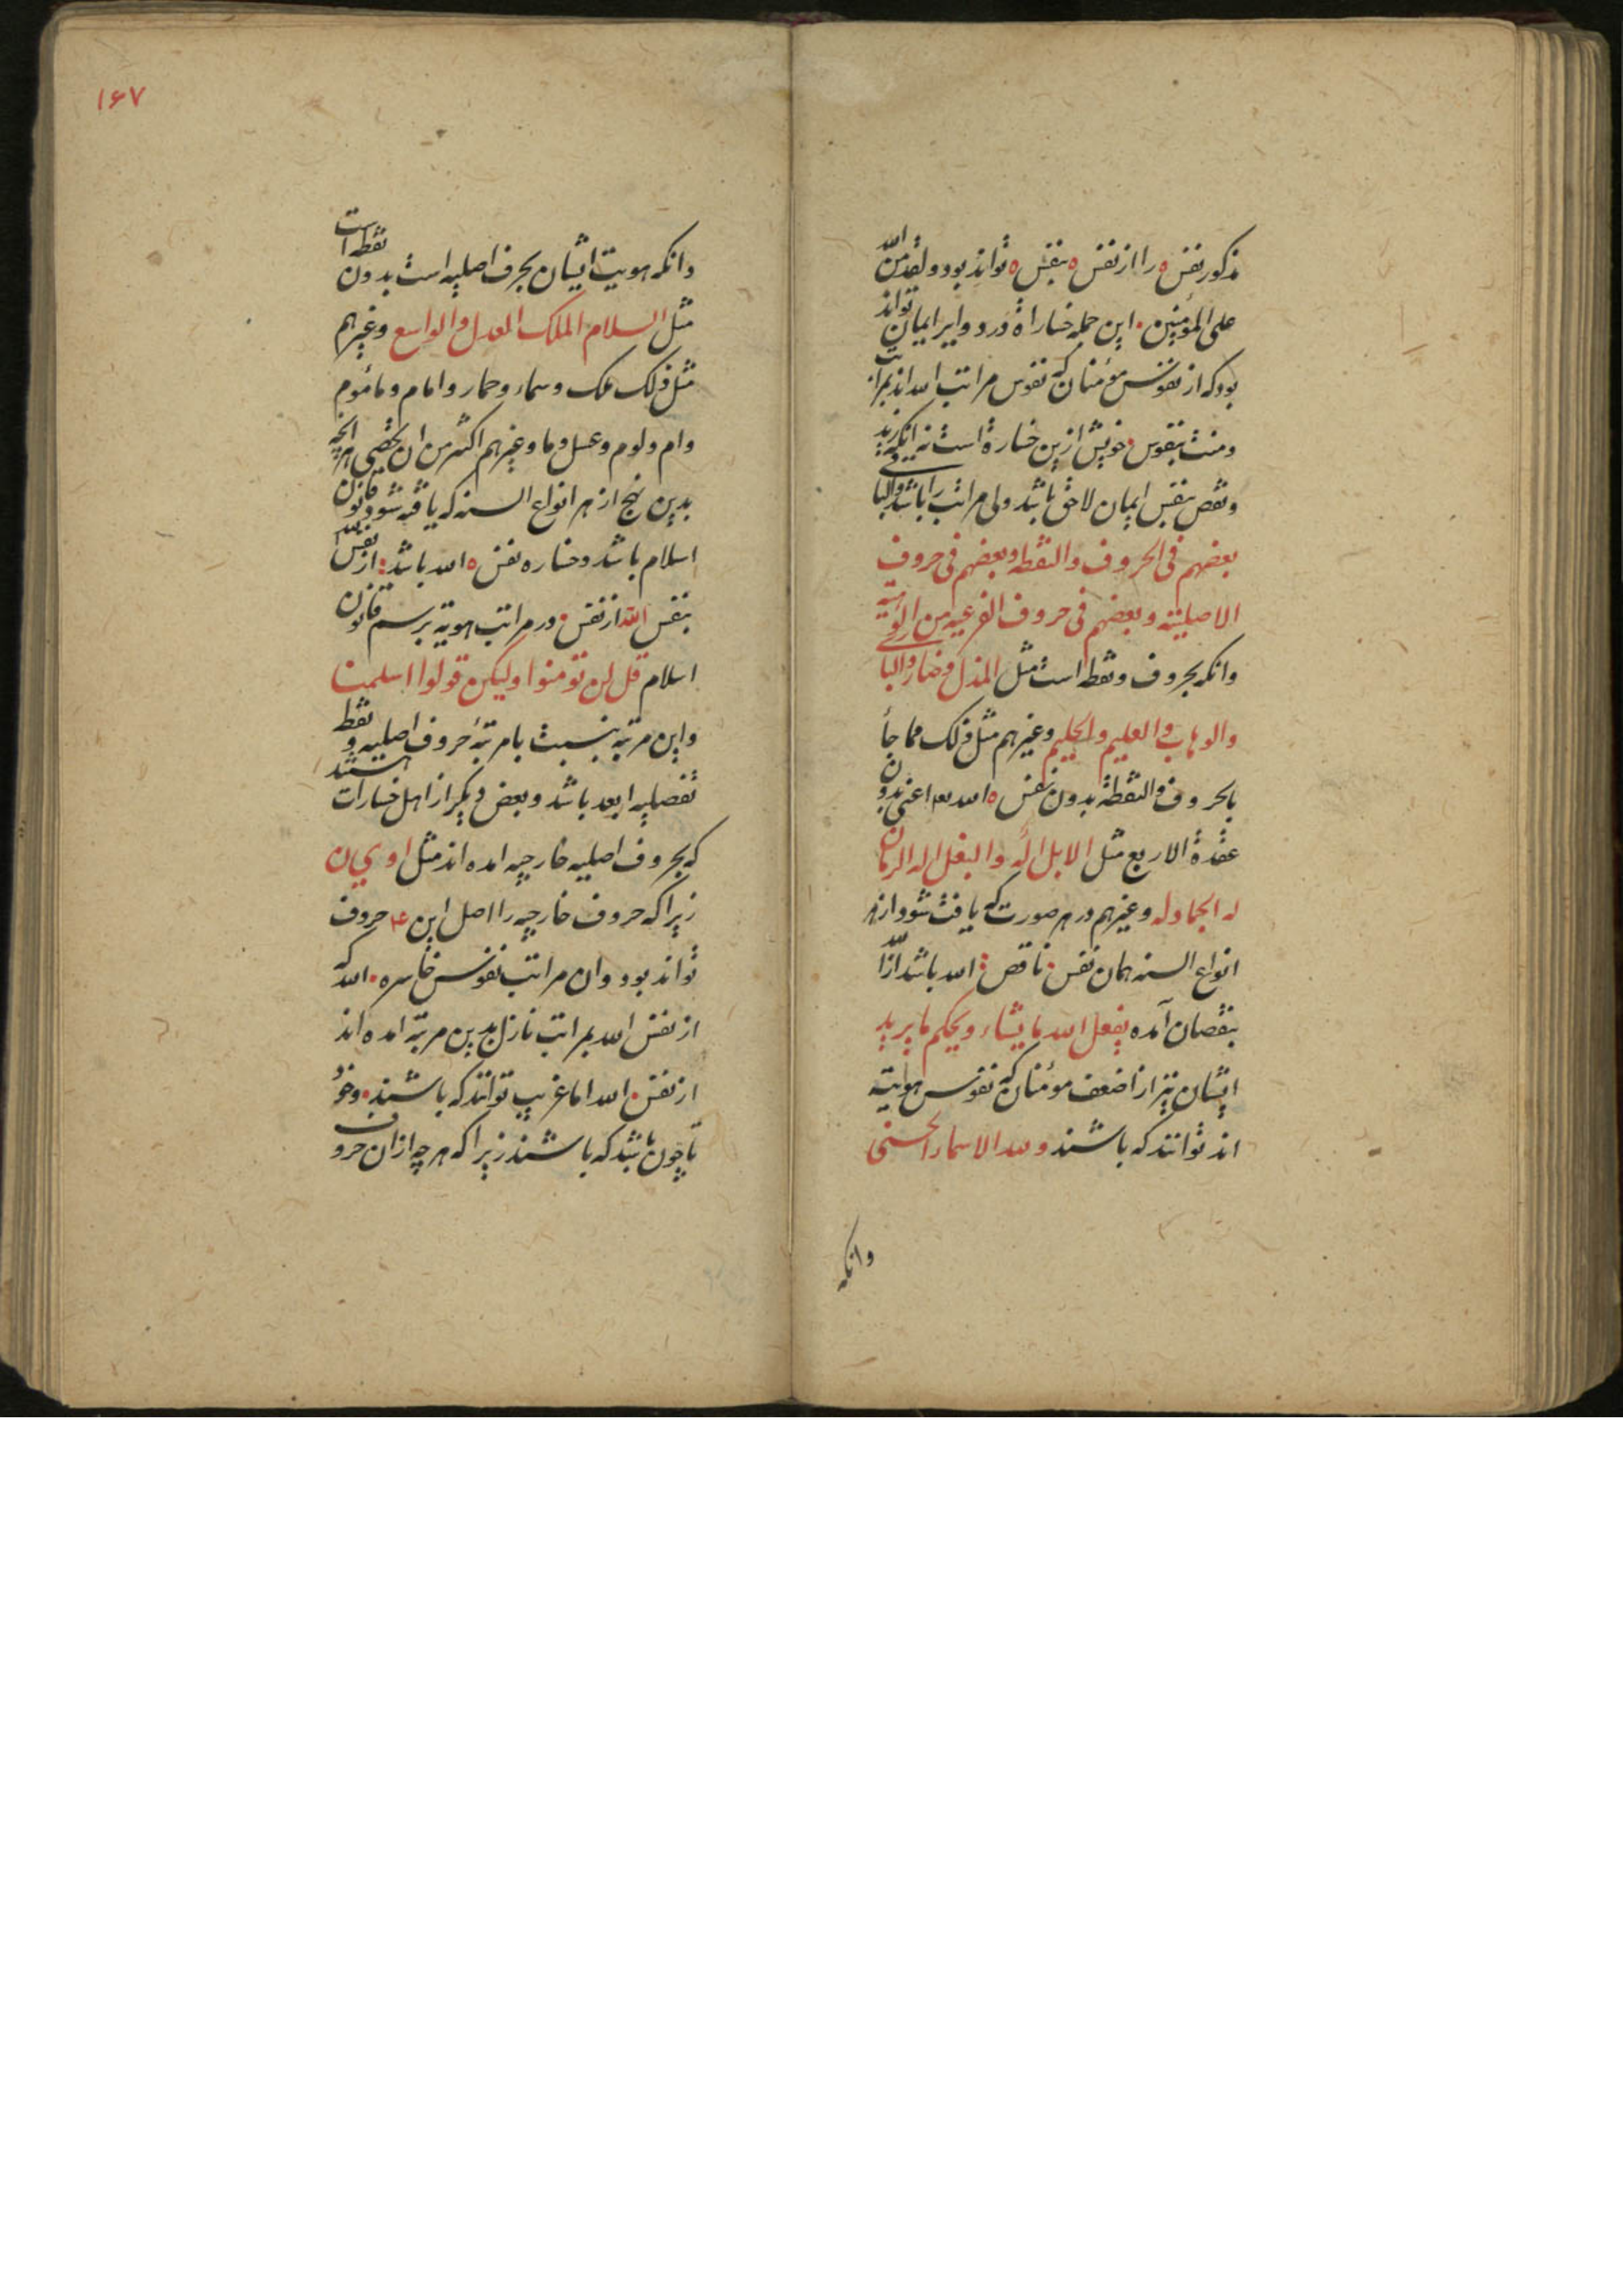 مذکور نفس ه را از نفس ه بنفس ه تواند بود و لقد من الله
علی المؤمنین این جمله خساراة در دوایر ایمان تواند
بود که از نفوس مؤمنان که نفوس مراتب الله اند بمراتب
ومنت بنفوس خویش ازین خسارة است نه انکه
ونقص بنفس ایمان لاحق باشد ولی مراتب را باشد
بعضهم فی الحروف والنقطه وبعضهم فی حروف
الاصلیته وبعضهم فی حروف الفرعیه من
وانکه بحروف ونقط است مثل المذل وضار
والوهاب والعلیم والحلیم وغیرهم مثل ذلک مما جأ
بالحروف والنقطة بدون نفس ه الله اعنی بدون
عقدة الاربع مثل الابل اله والبغل اله الرمان
له الجماد له وغیرهم در هر صورت که یافت شود از هر
انواع السنه همان نفس ناقص الله باشد
بنقصان آمده یفعل الله ما یشاء ویحکم ما یرید
ایشان نیز از اضعف مومنان که نفوس هویته
اند توانند که باشند ولله الاسماء الحسنی
وانکه
۱۶۷
وانکه هویت ایشان بحرف اصلیه است بدون نقطه است
مثل السلام الملک العدل والواسع وغیرهم
مثل ذلک ملک وسماء وحمار وامام ومأموم
وام ولوم وعسل وما وغیرهم اکثر من ان یحصی هر انچه
بدین نهج از هر انواع السنه که یافته شود قانون
اسلام باشد وخساره نفس ه الله باشد از نفس
بنفس الله از نفس در مراتب هویته برسم قانون
اسلام قل لن تومنوا ولیکن قولوا اسلمنا
واین مرتبه بنسبت با مرتبهٔ حروف اصلیه و نقط
تفصلیه ابعد باشد وبعض دیکر از اهل خسارات هستند
که بحروف اصلیه خارجیه امده اند مثل ا و ی ن
زیرا که حروف خارجیه را اصل این ۴ حروف
تواند بود وان مراتب نفوس خاسره الله که
از نفس الله بمراتب نازل بدین مرتبه امده اند
از نفس الله اما غریب توانند که باشند وخو
یا چون باشد که باشند زیرا که هر چه ازان حروف